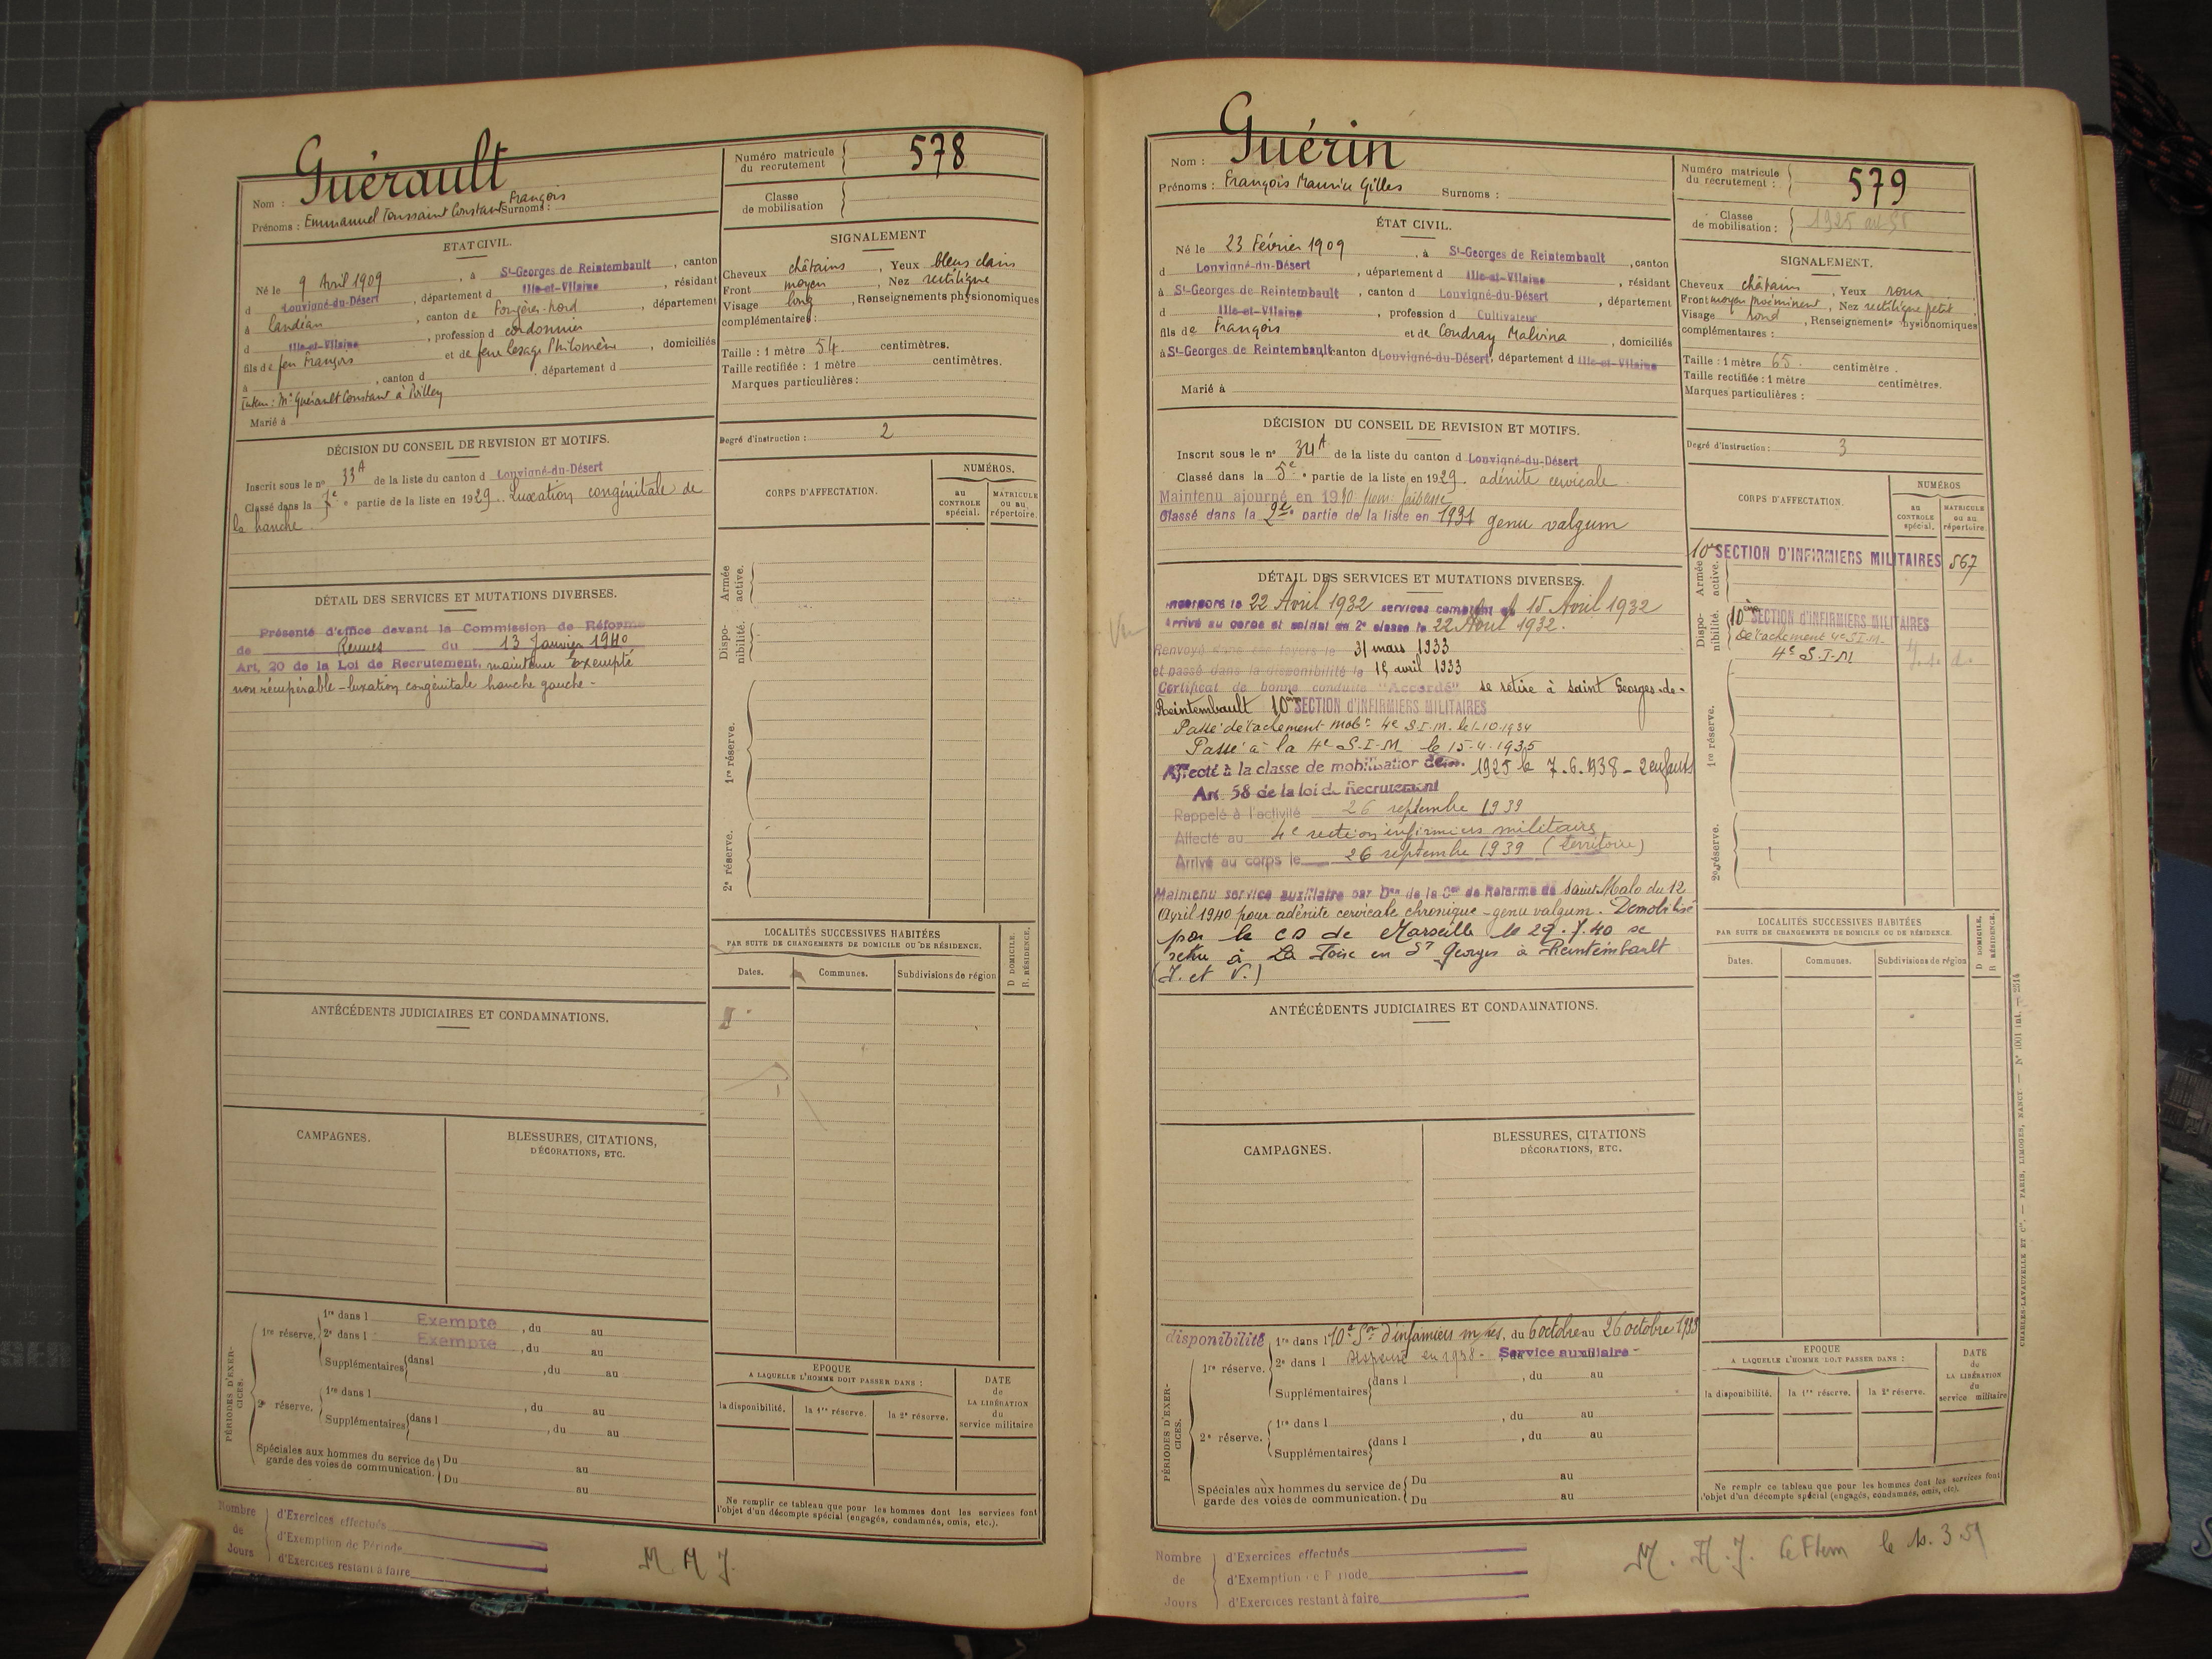 Guérault
Nom :
Prénoms : Emmanuel Toussaint Constant François Surnoms :
Numéro matricule du recrutement 578
Classe de mobilisation
ETAT CIVIL.
Né le 9 Avril 1909, à St-Georges de Reintembault, canton
d Louvigné-du-Désert, département d Ille-et-Vilaine, résidant
à Landéan, canton de Fougères-Nord, département
d Ille-et-Vilaine, profession d cordonnier
fils de feu François et de feue Lesage Philomène, domiciliés
à , canton d , département d
Tuteur : Mr Guérault Constant à Rilley
Marié à
SIGNALEMENT
Cheveux châtains, Yeux bleus clairs
Front moyen, Nez rectiligne
Visage long, Renseignements physionomiques
complémentaires :
Taille : 1 mètre 54 centimètres.
Taille rectifiée : 1 mètre centimètres.
Marques particulières :
Degré d'instruction : 2
DÉCISION DU CONSEIL DE REVISION ET MOTIFS.
Inscrit sous le n° 33A de la liste du canton d Louvigné-du-Désert
Classé dans la 7e partie de la liste en 1929. Luxation congénitale de
la hanche
DÉTAIL DES SERVICES ET MUTATIONS DIVERSES.
Présenté d'office devant la Commission de Réforme
de Rennes du 13 Janvier 1940
Art. 20 de la Loi de Recrutement, maintenu Exempté
non récupérable - luxation congénitale hanche gauche -
CORPS D'AFFECTATION.
NUMÉROS.
au CONTROLE spécial.
MATRICULE ou au répertoire.
Armée active.
Disponibilité.
1re réserve.
2e réserve.
LOCALITÉS SUCCESSIVES HABITÉES
PAR SUITE DE CHANGEMENTS DE DOMICILE OU DE RÉSIDENCE.
D DOMICILE. R. RÉSIDENCE.
Dates. Communes. Subdivisions de région
ANTÉCÉDENTS JUDICIAIRES ET CONDAMNATIONS.
CAMPAGNES.
BLESSURES, CITATIONS, DÉCORATIONS, ETC.
PÉRIODES D'EXERCICES.
1re réserve. 1re dans l Exempte, du au
2e dans l Exempte, du au
Supplémentaires dans l , du au
2e réserve. 1re dans l , du au
Supplémentaires dans l , du au
Spéciales aux hommes du service de garde des voies de communication. Du au
Du au
EPOQUE
A LAQUELLE L'HOMME DOIT PASSER DANS :
la disponibilité. la 1re réserve. la 2e réserve.
DATE de LA LIBÉRATION du service militaire
Ne remplir ce tableau que pour les hommes dont les services font
l'objet d'un décompte spécial (engagés, condamnés, omis, etc.).
Nombre de Jours
d'Exercices effectués
d'Exemption de Période
d'Exercices restant à faire
Guérin
Nom :
Prénoms : François Maurice Gilles Surnoms :
Numéro matricule du recrutement : 579
Classe de mobilisation : 1925 art 58
ÉTAT CIVIL.
Né le 23 Février 1909, à St-Georges de Reintembault, canton
d Louvigné-du-Désert, département d Ille-et-Vilaine, résidant
à St-Georges de Reintembault, canton d Louvigné-du-Désert, département
d Ille-et-Vilaine, profession d Cultivateur
fils de François et de Coudray Malvina, domiciliés
à St-Georges de Reintembault canton d Louvigné-du-Désert, département d Ille-et-Vilaine
Marié à
SIGNALEMENT.
Cheveux châtains, Yeux roux
Front moyen proéminent, Nez rectiligne petit
Visage rond, Renseignements physionomiques
complémentaires :
Taille : 1 mètre 65 centimètre.
Taille rectifiée : 1 mètre centimètres.
Marques particulières :
Degré d'instruction : 3
DÉCISION DU CONSEIL DE REVISION ET MOTIFS.
Inscrit sous le n° 34A de la liste du canton d Louvigné-du-Désert
Classé dans la 5e partie de la liste en 1929. adénite cervicale
Maintenu ajourné en 1930 faiblesse
Classé dans la 2e partie de la liste en 1931 genu valgum
DÉTAIL DES SERVICES ET MUTATIONS DIVERSES.
Incorporé le 22 Avril 1932 services comptent du 15 Avril 1932
Arrivé au corps et soldat de 2e classe le 22 Avril 1932.
Renvoyé dans ses foyers le 31 mars 1933
et passé dans la disponibilité le 15 avril 1933
Certificat de bonne conduite "Accordé" se retire à saint Georges-de-
Reintembault 10ème SECTION D'INFIRMIERS MILITAIRES
Passé détachement mobr 4e S.I.M. le 1-10-1934
Passé à la 4e S.I.M le 15-4-1935
Affecté à la classe de mobilisation de 1925 le 7.6.1938 - 2 enfants
Art. 58 de la loi de Recrutement
Rappelé à l'activité 26 septembre 1939
Affecté au 4e section infirmiers militaires
Arrivé au corps le 26 septembre 1939 (territoire)
Maintenu service auxiliaire par Don de la Con de Réforme de Saint Malo du 12
Avril 1940 pour adénite cervicale chronique - genu valgum. Démobilisé
par le CD de Marseille le 29.7.40 se
retire à La Toise en St Georges à Reintembault
(I. et V.)
CORPS D'AFFECTATION.
NUMÉROS
au CONTROLE spécial.
MATRICULE ou au répertoire.
Armée active. 10e SECTION D'INFIRMIERS MILITAIRES 567
Disponibilité. 10ème SECTION D'INFIRMIERS MILITAIRES
Détachement 4e S.I.M.
4e S.I.M
1re réserve.
2e réserve.
LOCALITÉS SUCCESSIVES HABITÉES
PAR SUITE DE CHANGEMENTS DE DOMICILE OU DE RÉSIDENCE.
D DOMICILE. R RÉSIDENCE.
Dates. Communes. Subdivisions de région
ANTÉCÉDENTS JUDICIAIRES ET CONDAMNATIONS.
CAMPAGNES.
BLESSURES, CITATIONS DÉCORATIONS, ETC.
PÉRIODES D'EXERCICES.
disponibilité 1re dans l 10e Son d'infirmiers mres, du 6 octobre au 26 octobre 1933
1re réserve. 2e dans l dispensé en 1938 - Service auxiliaire -
Supplémentaires dans l , du au
2e réserve. 1re dans l , du au
Supplémentaires dans l , du au
Spéciales aux hommes du service de garde des voies de communication. Du au
Du au
EPOQUE
A LAQUELLE L'HOMME DOIT PASSER DANS :
la disponibilité. la 1re réserve. la 2e réserve.
DATE du LA LIBÉRATION du service militaire
Ne remplir ce tableau que pour les hommes dont les services font
l'objet d'un décompte spécial (engagés, condamnés, omis, etc).
Nombre de Jours
d'Exercices effectués
d'Exemption de Période
d'Exercices restant à faire
CHARLES-LAVAUZELLE ET Cie. — PARIS, LIMOGES, NANCY. —